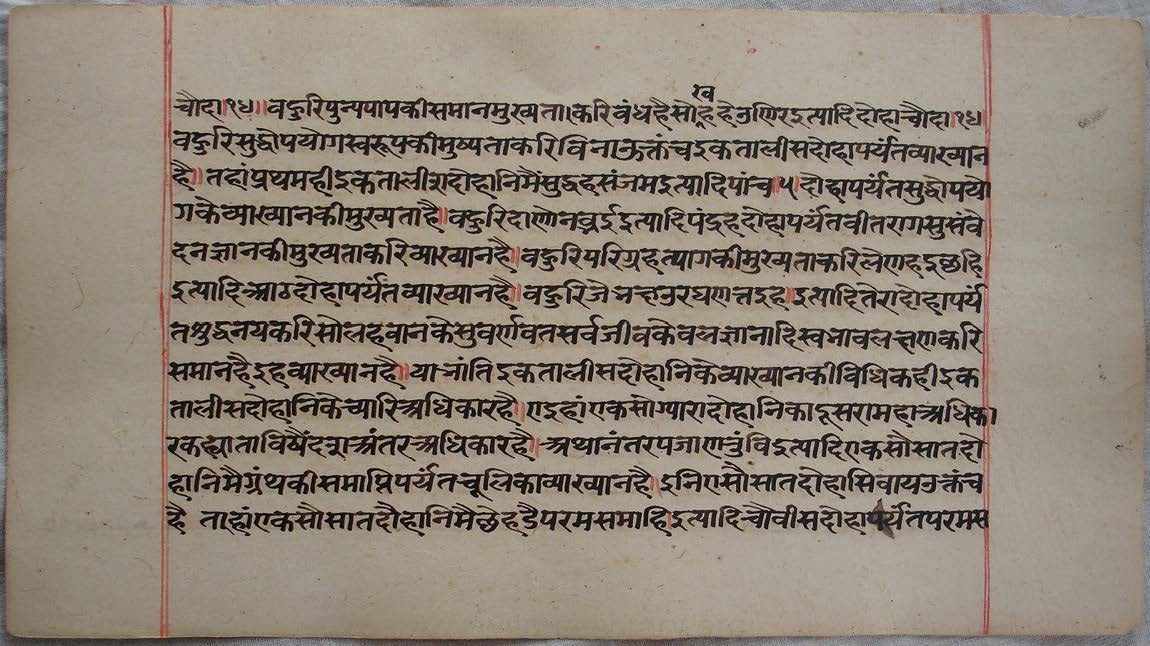 ख
चौदा॥१४॥वहुरिपुन्यपापकीसमानमुख्यता।करिवंधहैसोहहेउणिरइत्यादिदोहाचौदा॥१४॥
वहुरिसुद्धोपयोगस्वरूपकीमुष्यताकरिविनाऊक्तंचइकतालीसदोहापर्यंतव्याख्यान
है॥तहांप्रथमहीइकतालीशदोहानिमैंसुद्धहसंजमइत्यादिपांच॥५॥दोहापर्यंतसुद्धोपयो
गकैव्याख्यानकीमुख्यताहै॥वहुरिदाणेनइत्यादिपंद्रहदोहापर्यंतवीतरागसुसंवे
दनज्ञानकीमुख्यताकरिव्याख्यानहै॥वहुरिपरिग्रहत्यागकीमुख्यताकरिलेणहइछहि
इत्यादिआठदोहापर्यंतव्याख्यानहै॥वहुरिजोइत्यादितेरादोहापर्यं
तशुद्धनयकरिसोलहवानकेसुवर्णवतसर्वजीवकेवलज्ञानादिस्वभावलक्षणकरि
समानहैइहव्याख्यानहै॥याभांतिइकतालीसदोहानिकेव्याख्यानकीविधिकहीइक
तालीसदोहानिकेच्यारिअधिकारहै॥एइहांएकसोग्यारादोहानिकादूसरामहाअधिका
रकह्याताविषैंदशअंतरअधिकारहै॥अथानंतरपजाणुंविइत्यादिएकसौसातदो
हानिमैग्रंथकीसमाप्तिपर्यंतचूलिकाव्याख्यानहै॥इनिएसौसातदोहासिवायउक्तंच
है ताहांएकसौसातदोहानिमैछेहडैपरमसमाहिइत्यादिचौवीसदोहापर्यंतपरमस